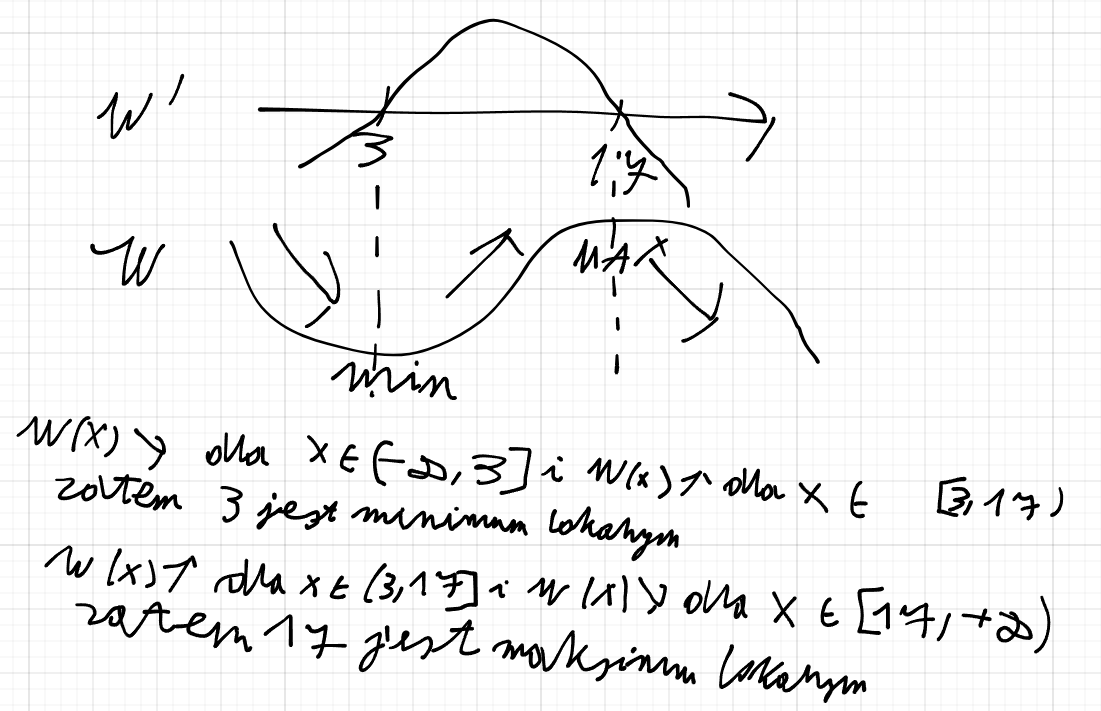 W'
3
17
W
MAX
min
W(x) ↘ dla x ∈ (-∞, 3] i W(x) ↗ dla x ∈ [3, 17)
zatem 3 jest minimum lokalnym
W(x) ↗ dla x ∈ (3, 17] i W(x) ↘ dla x ∈ [17, +∞)
zatem 17 jest maksimum lokalnym